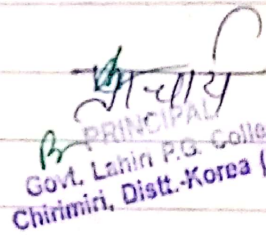 प्राचार्य
PRINCIPAL
Govt. Lahiri P.G. Colle
Chirimiri, Distt.-Korea (